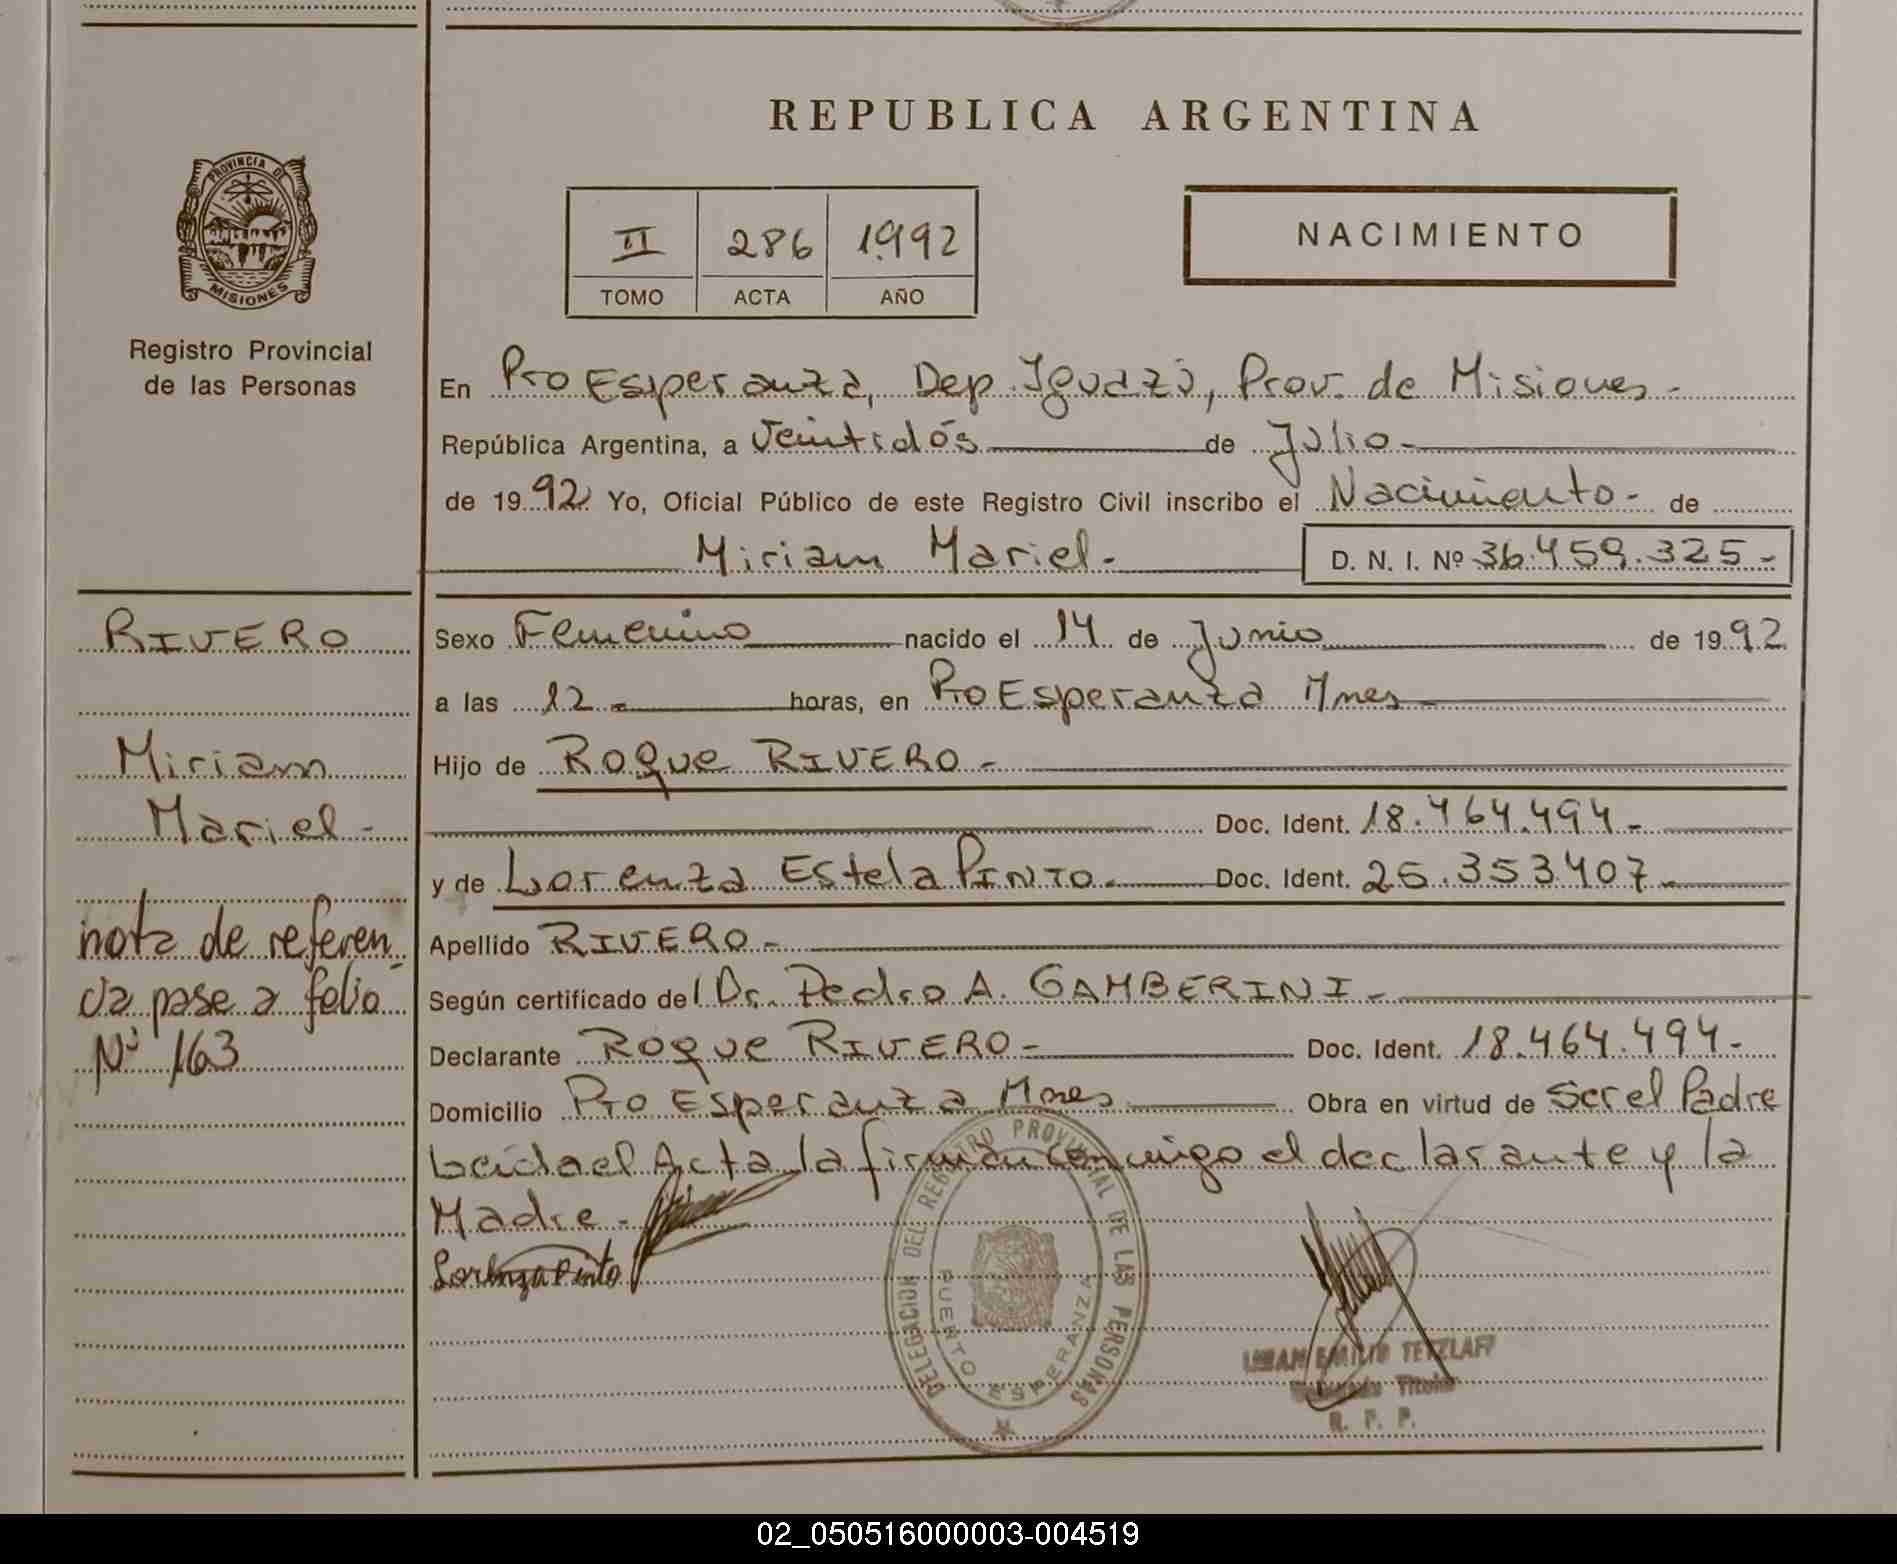 REPUBLICA ARGENTINA
PROVINCIA DE
MISIONES
Registro Provincial
de las Personas
II 286 1.992
TOMO ACTA AÑO
NACIMIENTO
En Pto Esperanza, Dep. Iguazú, Prov. de Misiones-
República Argentina, a Veintidós de Julio-
de 1992 Yo, Oficial Público de este Registro Civil inscribo el Nacimiento- de
Miriam Mariel- D. N. I. Nº 36.459.325-
RIVERO
Miriam
Mariel-
nota de referen
cia pase a folio
Nº 163
Sexo Femenino nacido el 14 de Junio de 1992
a las 12- horas, en Pto Esperanza Mnes
Hijo de Roque RIVERO-
Doc. Ident. 18.464.494-
y de Lorenza Estela PINTO- Doc. Ident. 25.353.407-
Apellido RIVERO-
Según certificado del Dr. Pedro A. GAMBERINI-
Declarante Roque RIVERO- Doc. Ident. 18.464.494-
Domicilio Pto Esperanza Mnes Obra en virtud de Ser el Padre
Leida el Acta la firman conmigo el declarante y la
Madre-
Lorenza Pinto
DELEGACION DEL REGISTRO PROVINCIAL DE LAS PERSONAS
PUERTO ESPERANZA
EMILIO TETZLAFF
Titular
R. P. P.
02_050516000003-004519